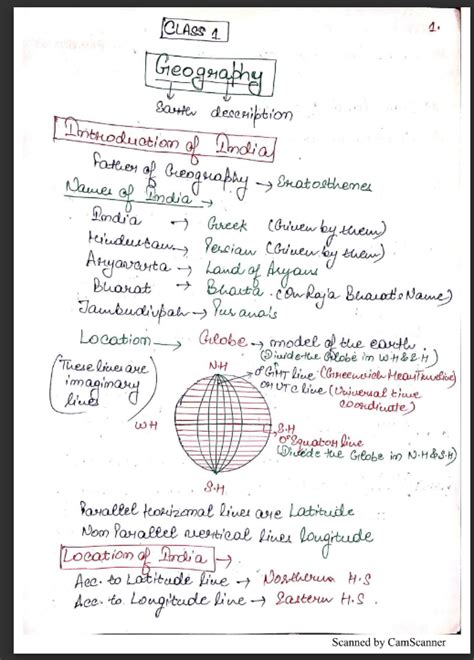 CLASS 1
1.
Geography
Earth description
Introduction of India
Father of Geography → Eratosthenes
Names of India →
India → Greek (Given by them)
Hindustan → Persian (Given by them)
Aryavarta → Land of Aryans
Bharat → Bharta (On Raja Bharat's Name)
Jambudivpah → Purana's
Location → Globe → model of the earth.
(Divide the Globe in W.H & E.H)
(These lines are imaginary lines)
N.H
0° GMT line (Greenwich Mean Time line)
OR UTC line (Universal time coordinate)
W.H
S.H
0° Equator line
(Divide the Globe in N.H & S.H)
S.H
Parallel Horizonal lines are Latitude
Non Parallel vertical lines longitude
Location of India →
Acc. to Latitude line → Northern H.S
Acc. to Longitude line → Eastern H.S.
Scanned by CamScanner